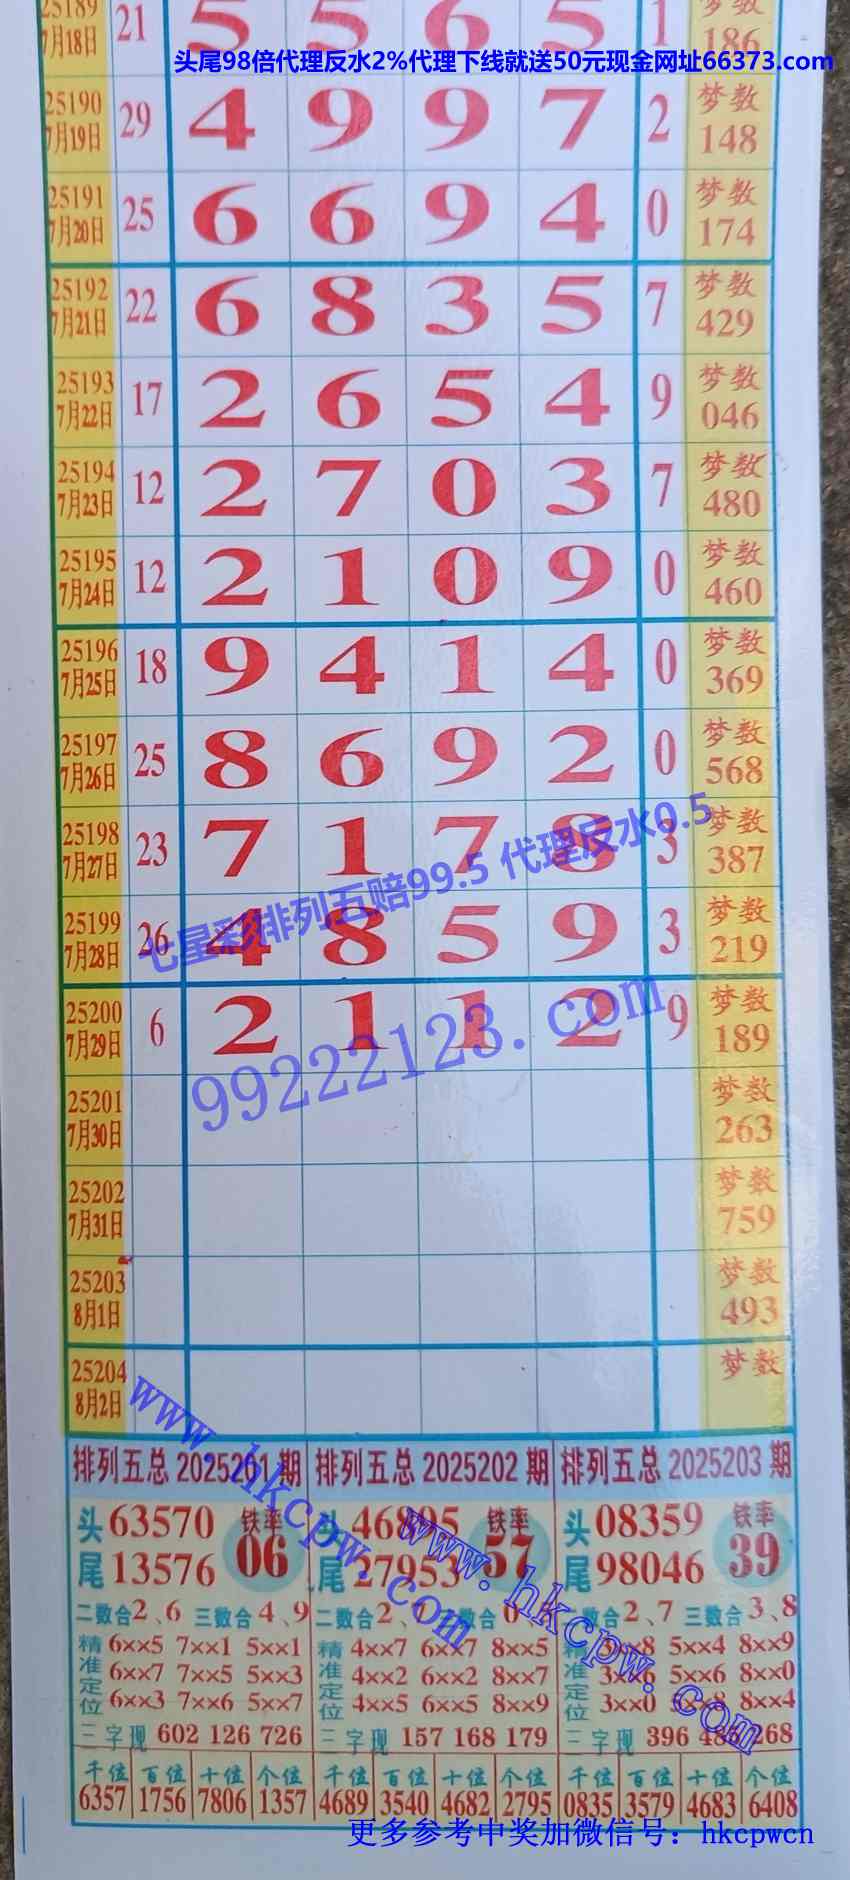 25189
7月18日 21 5 5 6 5 1 梦数 186
头尾98倍代理反水2%代理下线就送50元现金网址66373.com
25190 梦数
7月19日 29 4 9 9 7 2 148
25191 梦数
7月20日 25 6 6 9 4 0 174
25192 梦数
7月21日 22 6 8 3 5 7 429
25193 梦数
7月22日 17 2 6 5 4 9 046
25194 梦数
7月23日 12 2 7 0 3 7 480
25195 梦数
7月24日 12 2 1 0 9 0 460
25196 梦数
7月25日 18 9 4 1 4 0 369
25197 梦数
7月26日 25 8 6 9 2 0 568
25198 梦数
7月27日 23 7 1 7 8 3 387
七星彩排列五赔99.5 代理反水0.5
25199 梦数
7月28日 26 4 8 5 9 3 219
25200 梦数
7月29日 6 2 1 1 2 9 189
99222123.com
25201 梦数
7月30日 263
25202 梦数
7月31日 759
25203 梦数
8月1日 493
25204 梦数
8月2日
www.hkcpw.com
排列五总 2025201 期 排列五总 2025202 期 排列五总 2025203 期
头 63570 铁率 头 46895 铁率 头 08359 铁率
尾 13576 06 尾 27953 57 尾 98046 39
www.hkcpw.com
二数合2、6 三数合4、9 二数合2、 数合 数合2、7 三数合3、8
精准定位 6××5 7××1 5××1 精准定位 4××7 6××7 8××5 精准定位 3××8 5××4 8××9
6××7 7××5 5××3 4××2 6××2 8××7 3××6 5××6 8××0
6××3 7××6 5××7 4××5 6××5 8××9 3××0 8××4
三字现 602 126 726 三字现 157 168 179 三字现 396 486 268
千位 百位 十位 个位 千位 百位 十位 个位 千位 百位 十位 个位
6357 1756 7806 1357 4689 3540 4682 2795 0835 3579 4683 6408
更多参考中奖加微信号：hkcpwcn